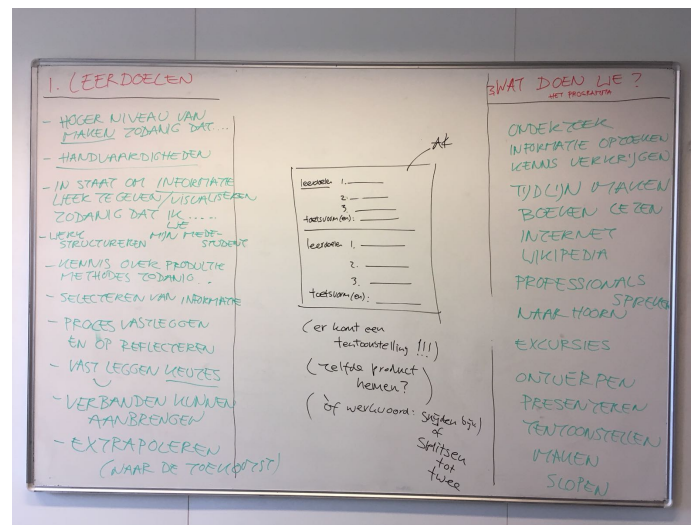 1. LEERDOELEN
- HOGER NIVEAU VAN
MAKEN ZODANIG DAT...
- HANDVAARDIGHEDEN
- IN STAAT OM INFORMATIE
WEER TE GEVEN/VISUALISEREN
ZODANIG DAT IK .....
WE
- WERK MIJN MEDE-
STRUCTUREREN STUDENT
- KENNIS OVER PRODUCTIE
METHODES ZODANIG...
- SELECTEREN VAN INFORMATIE
- PROCES VASTLEGGEN
EN OP REFLECTEREN
- VAST LEGGEN KEUZES
- VERBANDEN KUNNEN
AANBRENGEN
- EXTRAPOLEREN
(NAAR DE TOEKOMST)
A4
leerdoelen 1.
2.
3.
toetsvorm(en):
leerdoelen 1.
2.
3.
toetsvorm(en):
(er komt een
tentoonstelling !!!)
(zelfde product
nemen?)
(òf werkwoord: snijden bijv)
of
splitsen
tot
twee
3 WAT DOEN WE?
HET PROGRAMMA
ONDERZOEK
INFORMATIE OPZOEKEN
KENNIS VERKRIJGEN
TIJDLIJN MAKEN
BOEKEN LEZEN
INTERNET
WIKIPEDIA
PROFESSIONALS
SPREKEN
NAAR HOORN
EXCURSIES
ONTWERPEN
PRESENTEREN
TENTOONSTELLEN
MAKEN
SLOPEN